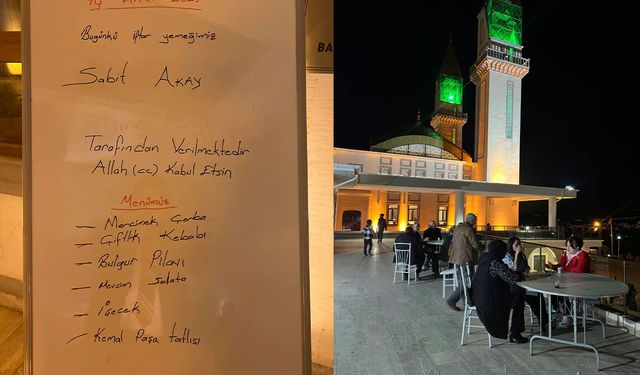 Bugünkü iftar yemeğimiz
Sabit AKAY
Tarafından Verilmektedir
Allah (cc) Kabul Etsin
Menümüz
— Mercimek Çorba
— Çiftlik Kebabı
— Bulgur Pilavı
— Mevsim Salata
— İçecek
— Kemal Paşa tatlısı
BA